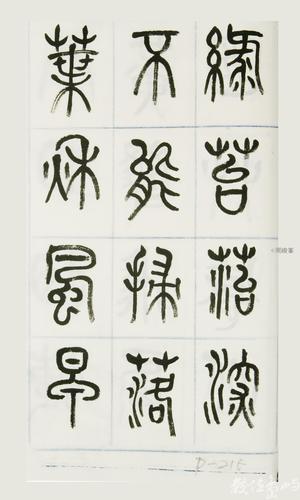 綠苔菭深
不能掃落
葉秋風早
D-215